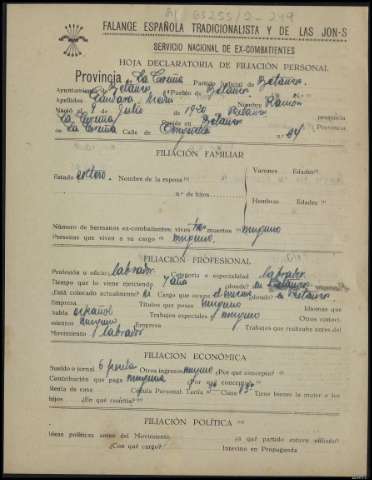 65255/2-219
FALANGE ESPAÑOLA TRADICIONALISTA Y DE LAS JON-S
SERVICIO NACIONAL DE EX-COMBATIENTES
HOJA DECLARATORIA DE FILIACIÓN PERSONAL
Provincia La Coruña Partido Judicial de Betanzos
Ayuntamiento Betanzos Pueblo de Betanzos
Apellidos Nombre Ramón
Nació el 9 Julio de 1920 Betanzos provincia
La Coruña Reside en Betanzos Provincia
de La Coruña Calle de nº 24
FILIACIÓN FAMILIAR
Estado soltero Nombre de la esposa Varones Edades
n.º de hijos
Hembras Edades
Número de hermanos ex-combatientes: vivos tres muertos ninguno
Personas que viven a su cargo ninguno
FILIACIÓN PROFESIONAL
Profesión u oficio labrador Categoría o especialidad labrador
Tiempo que lo viene ejerciendo 7 años ¿dónde? en Betanzos
¿Está colocado actualmente? Cargo que ocupa ¿dónde? en Betanzos
Empresa Títulos que posee ninguno Idiomas que
habla español Trabajos especiales ninguno Otros conoci-
mientos ninguno Empresa Trabajos que realizaba antes del
Movimiento labrador
FILIACIÓN ECONÓMICA
Sueldo o jornal 6 Otros ingresos ninguno ¿Por qué concepto?
Contribución que paga ninguna ¿Por qué concepto?
Renta de casa Cédula Personal Tarifa 3ª Clase Tiene bienes la mujer o los
hijos ¿En qué cuantía?
FILIACIÓN POLÍTICA
Ideas políticas antes del Movimiento ¿A qué partido estuvo afiliado?
¿Con qué cargo? Intervino en Propaganda